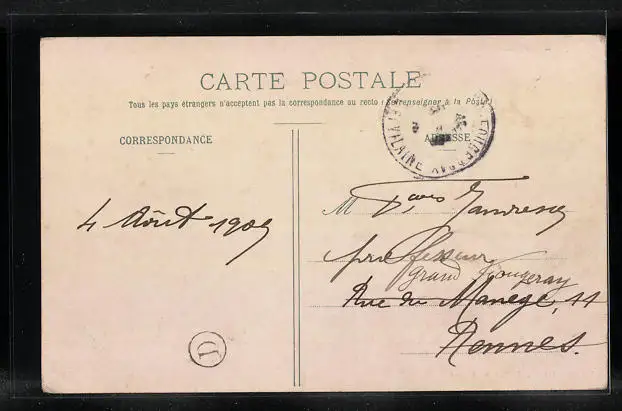 CARTE POSTALE
Tous les pays étrangers n'acceptent pas la correspondance au recto (Se renseigner à la Poste)
CORRESPONDANCE
ADRESSE
4 Août 1905
M
professeur
grand Fougeray
Rue du Manège, 11
Rennes.
D